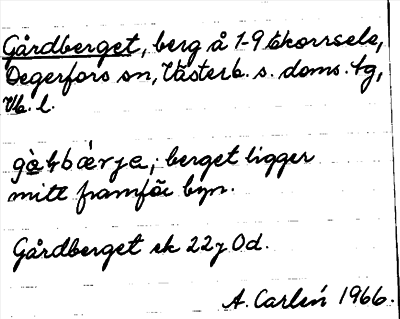 Gårdberget, berg å 1-9 Ekorrsele,
Degerfors sn, Västerb. s. doms. tg,
Vb. l.
berget ligger
mitt framför byn.
Gårdberget ek 22 7 Od.
A. Carlén 1966.